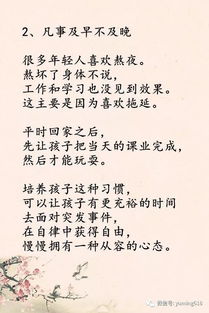 2、凡事及早不及晚
很多年轻人喜欢熬夜。
熬坏了身体不说，
工作和学习也没见到效果。
这主要是因为喜欢拖延。
平时回家之后，
先让孩子把当天的课业完成，
然后才能玩耍。
培养孩子这种习惯，
可以让孩子有更充裕的时间
去面对突发事件，
在自律中获得自由，
慢慢拥有一种从容的心态。
微信号: yuming616